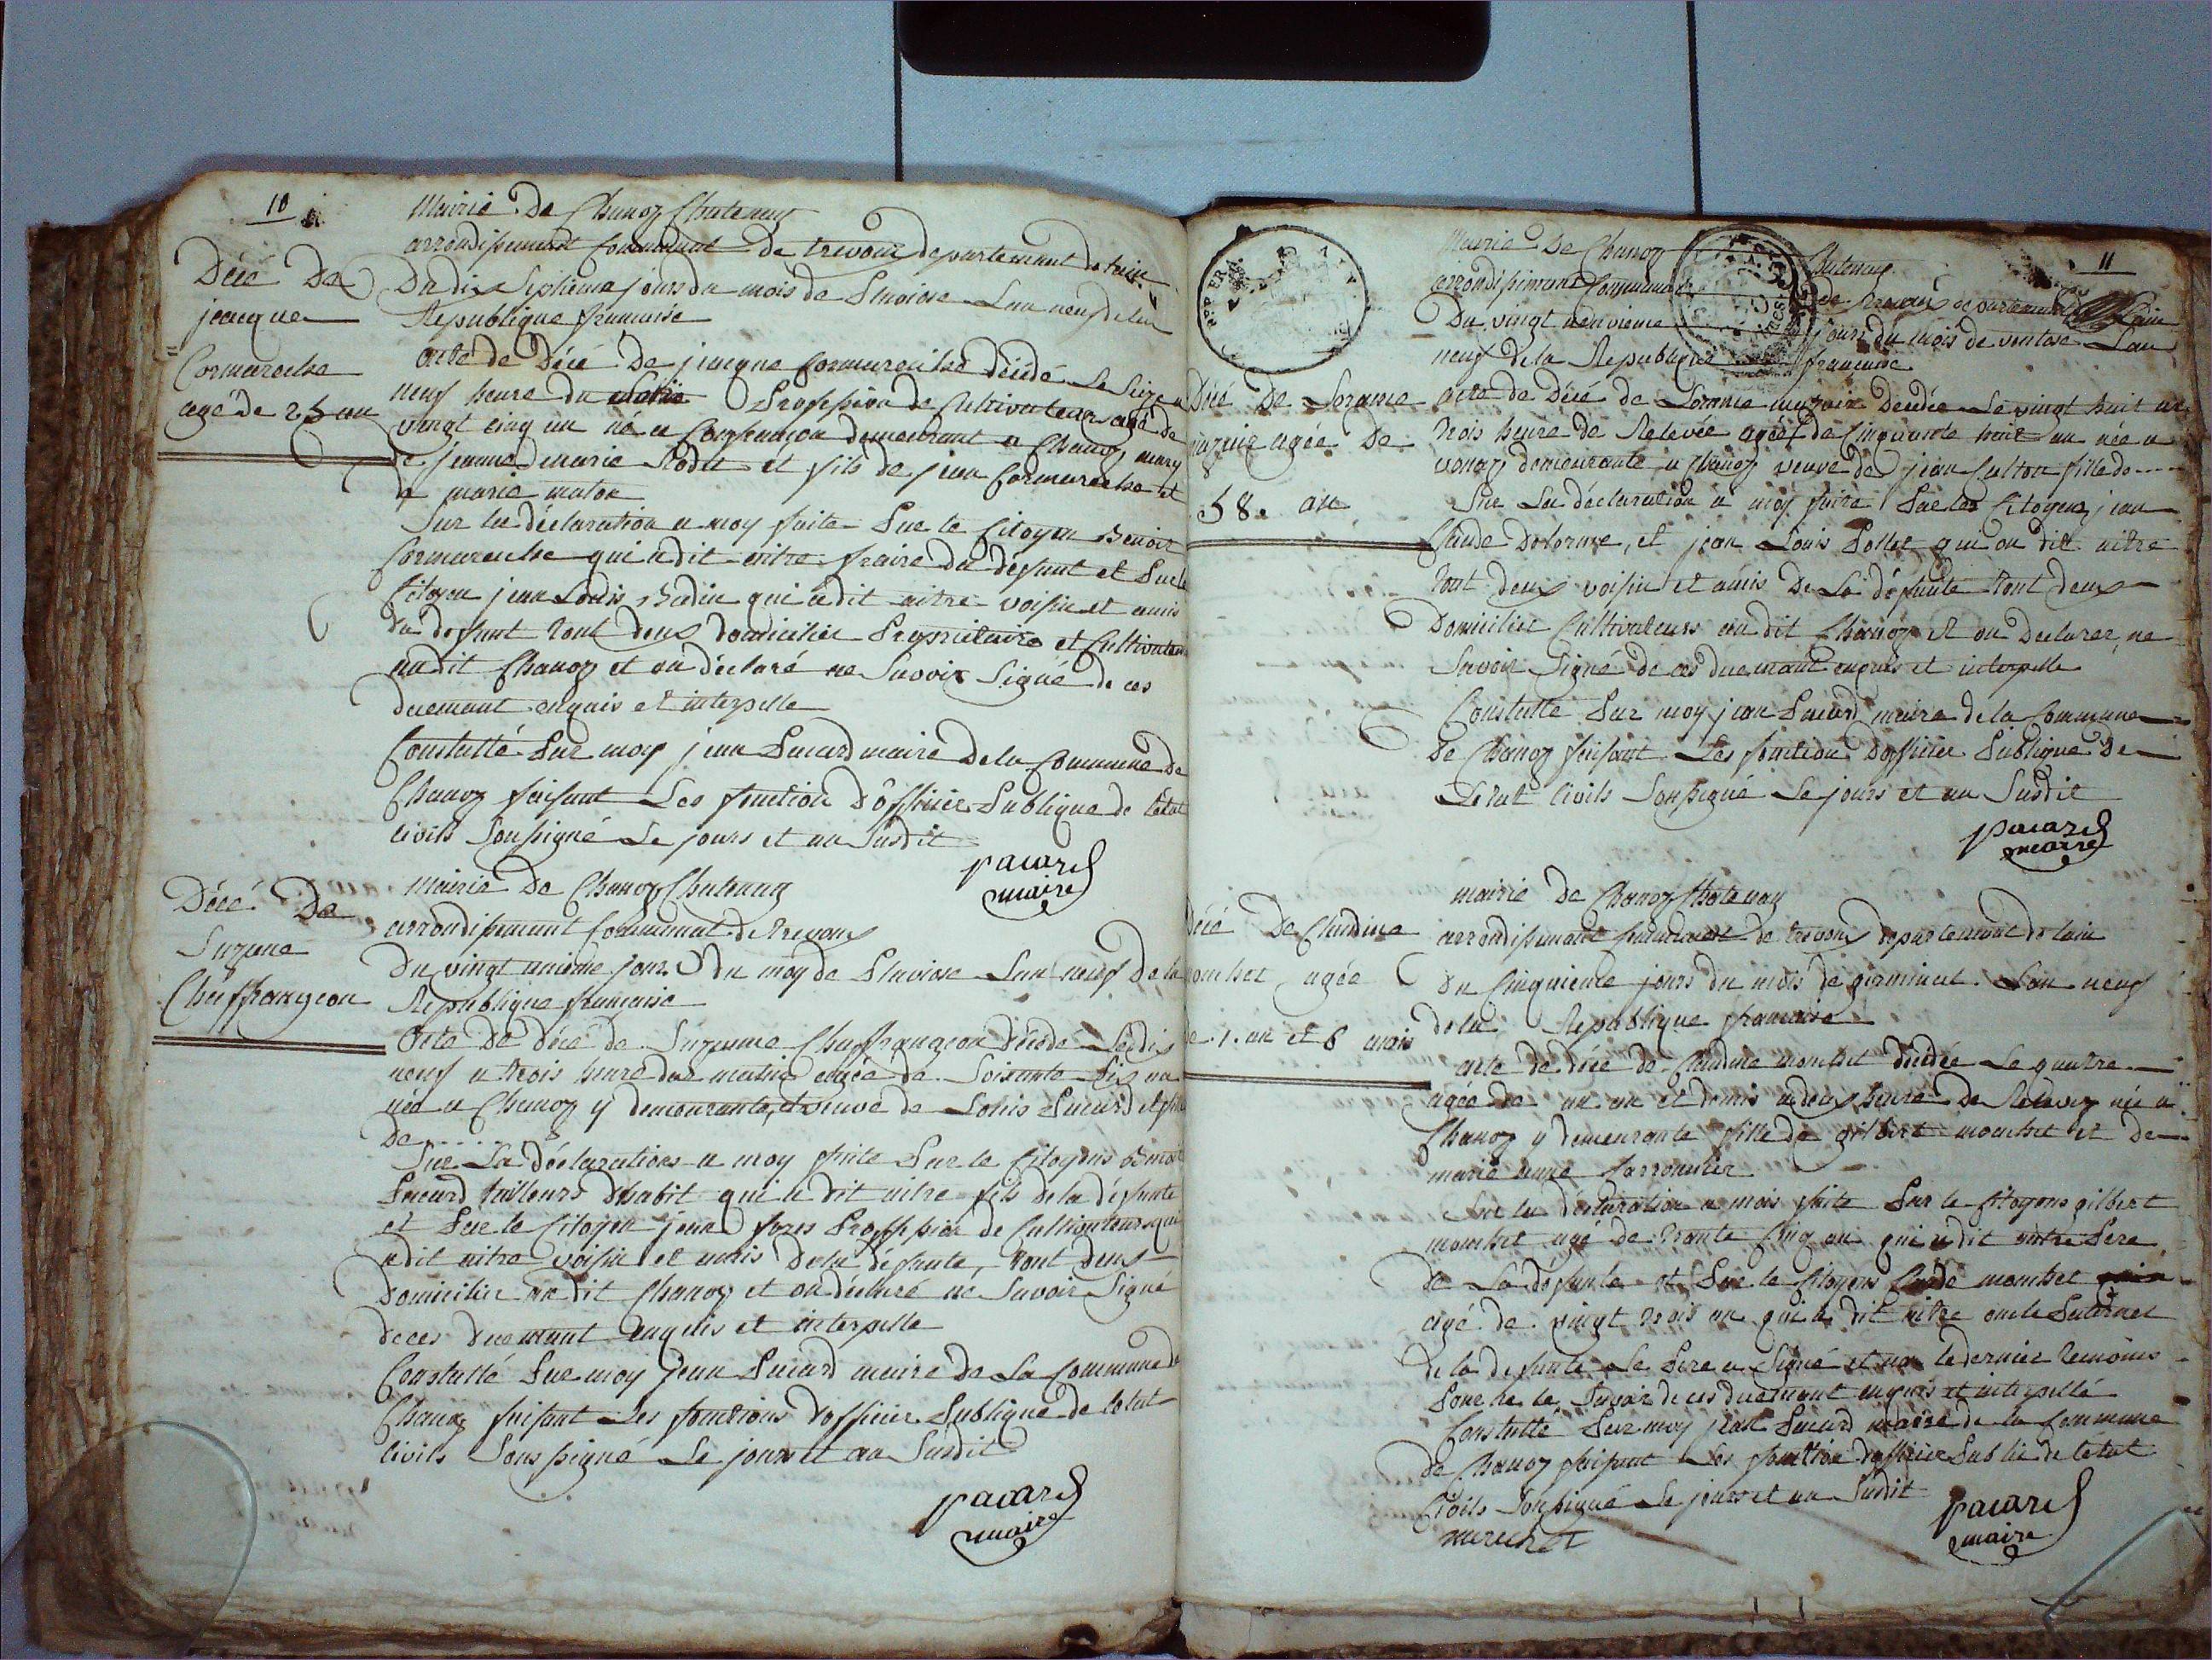 10
Mairie De Chanoz Chatenay
arrondissement Communal de trevoux departement de lain
Décé De
jacque
Cormareche
agé de 25 an
Du dix Septieme jours du mois de Pluviose Lan neuf de la
Republique francaise
acte de Décé De jacque Cormareche décédé Le Seize a
neuf heure du matin Profession de Cultivateur agé de
vingt cinq an né a demeurant a Chanoz mary
de jeanne marie et fils de jean Cormareche et
de marie
Sur la déclaration a moy faite Par le Citoyen Benoit
Cormareche qui a dit aitre fraire du defunt et Par le
Citoyen jean Louis qui a dit aitre voisin et amis
du defunt tout deux domicilier Proprietaire et Cultivateur
au dit Chanoz et on déclaré ne Savoir Signé de ces
duemant enquis et interpelle
Constatté Par moy jean Pacard maire de la Commune de
Chanoz faisant Les fonction d'officier Publique de letat
civils Soussigné Le jours et an Susdit
pacard
maire
Décé De
Suzane
Chaffrangeon
Mairie De Chanoz Chatenay
arrondissement Communal de trevoux
Du vingt unieme jour Du moy de Pluviose Lan neuf De la
Republique francaise
Acte De décé de Suzanne Chaffrangeon décédé Le dix
neuf a trois heure du matin agée de Soixante Dix an
née a Chanoz y demeurante, et veuve de Louis Pacard et fille
De ......
Sur La déclarations a moy faite Par le Citoyens Benoit
Pacard tailleurs d'habit qui a dit aitre fils de la défunte
et Par le Citoyen jean Profession de Cultivateurs qui
a dit aitre voisin et amis de la défunte, tout deux
Domicilier au dit Chanoz et on déclaré ne Savoir Signé
de ces duemant enquis et interpelle
Constatté Par moy jean Pacard maire de La Commune de
Chanoz faisant Les fonctions d'officier Publique de letat
civils Soussigné Le jours et an Susdit
pacard
maire
11
Mairie De Chanoz Chatenay
arrondissement Communal de trevoux departement de Lain
Du vingt neuvieme jours du mois de ventose Lan
neuf de la Republique francaise
Décé De
agée De
58. an
acte de Décé de décédée Le vingt huit a
trois heure de Relevée agée de Cinquante huit an née a
vonas demeurante a Chanoz veuve de jean fille de ....
Sur La déclaration a moy faite Par les Citoyens jean
Claude Delorme, et jean Louis Pollet qui on dit aitre
tout deux voisin et amis De La défunte tout deux
Domicilier Cultivateurs au dit Chanoz et on Declarer ne
Savoir Signé de ces duemant enquis et interpelle
Constatté Par moy jean Pacard maire de la Commune
de Chanoz faisant Les fonction d'officier Publique de
Letat Civils Soussigné Le jours et an Susdit
pacard
maire
mairie de Chanoz Chatenay
Décé De Claudine
monchet agée
de 1. an et 6 mois
arrondissement Communal de trevoux departement de lain
du Cinquieme jours du mois de germinal Lan neuf
de la Republique francaise
acte de décé de Claudine monchet décédée Le quatre
agée de un an et demis a deux heure de Relevez née a
Chanoz y demeurante fille de gilbert monchet et de
marie anne
Sur la déclaration a mois faite Par le Citoyens gilbert
monchet agé de trante Cinq an qui a dit aitre Pere
de La défunte et Par le Citoyens Claude monchet
agé de vingt trois an qui a dit aitre oncle Paternel
de la defunte Le Pere a Signé et non le dernier temoins
Pour ne le Savoir de ces duemant enquis et interpellé
Constatté Par moy jean Pacard maire de la Commune
de Chanoz faisant Les fonction d'officier Public de letat
Civils Soussigné Le jours et an Susdit
pacard
maire